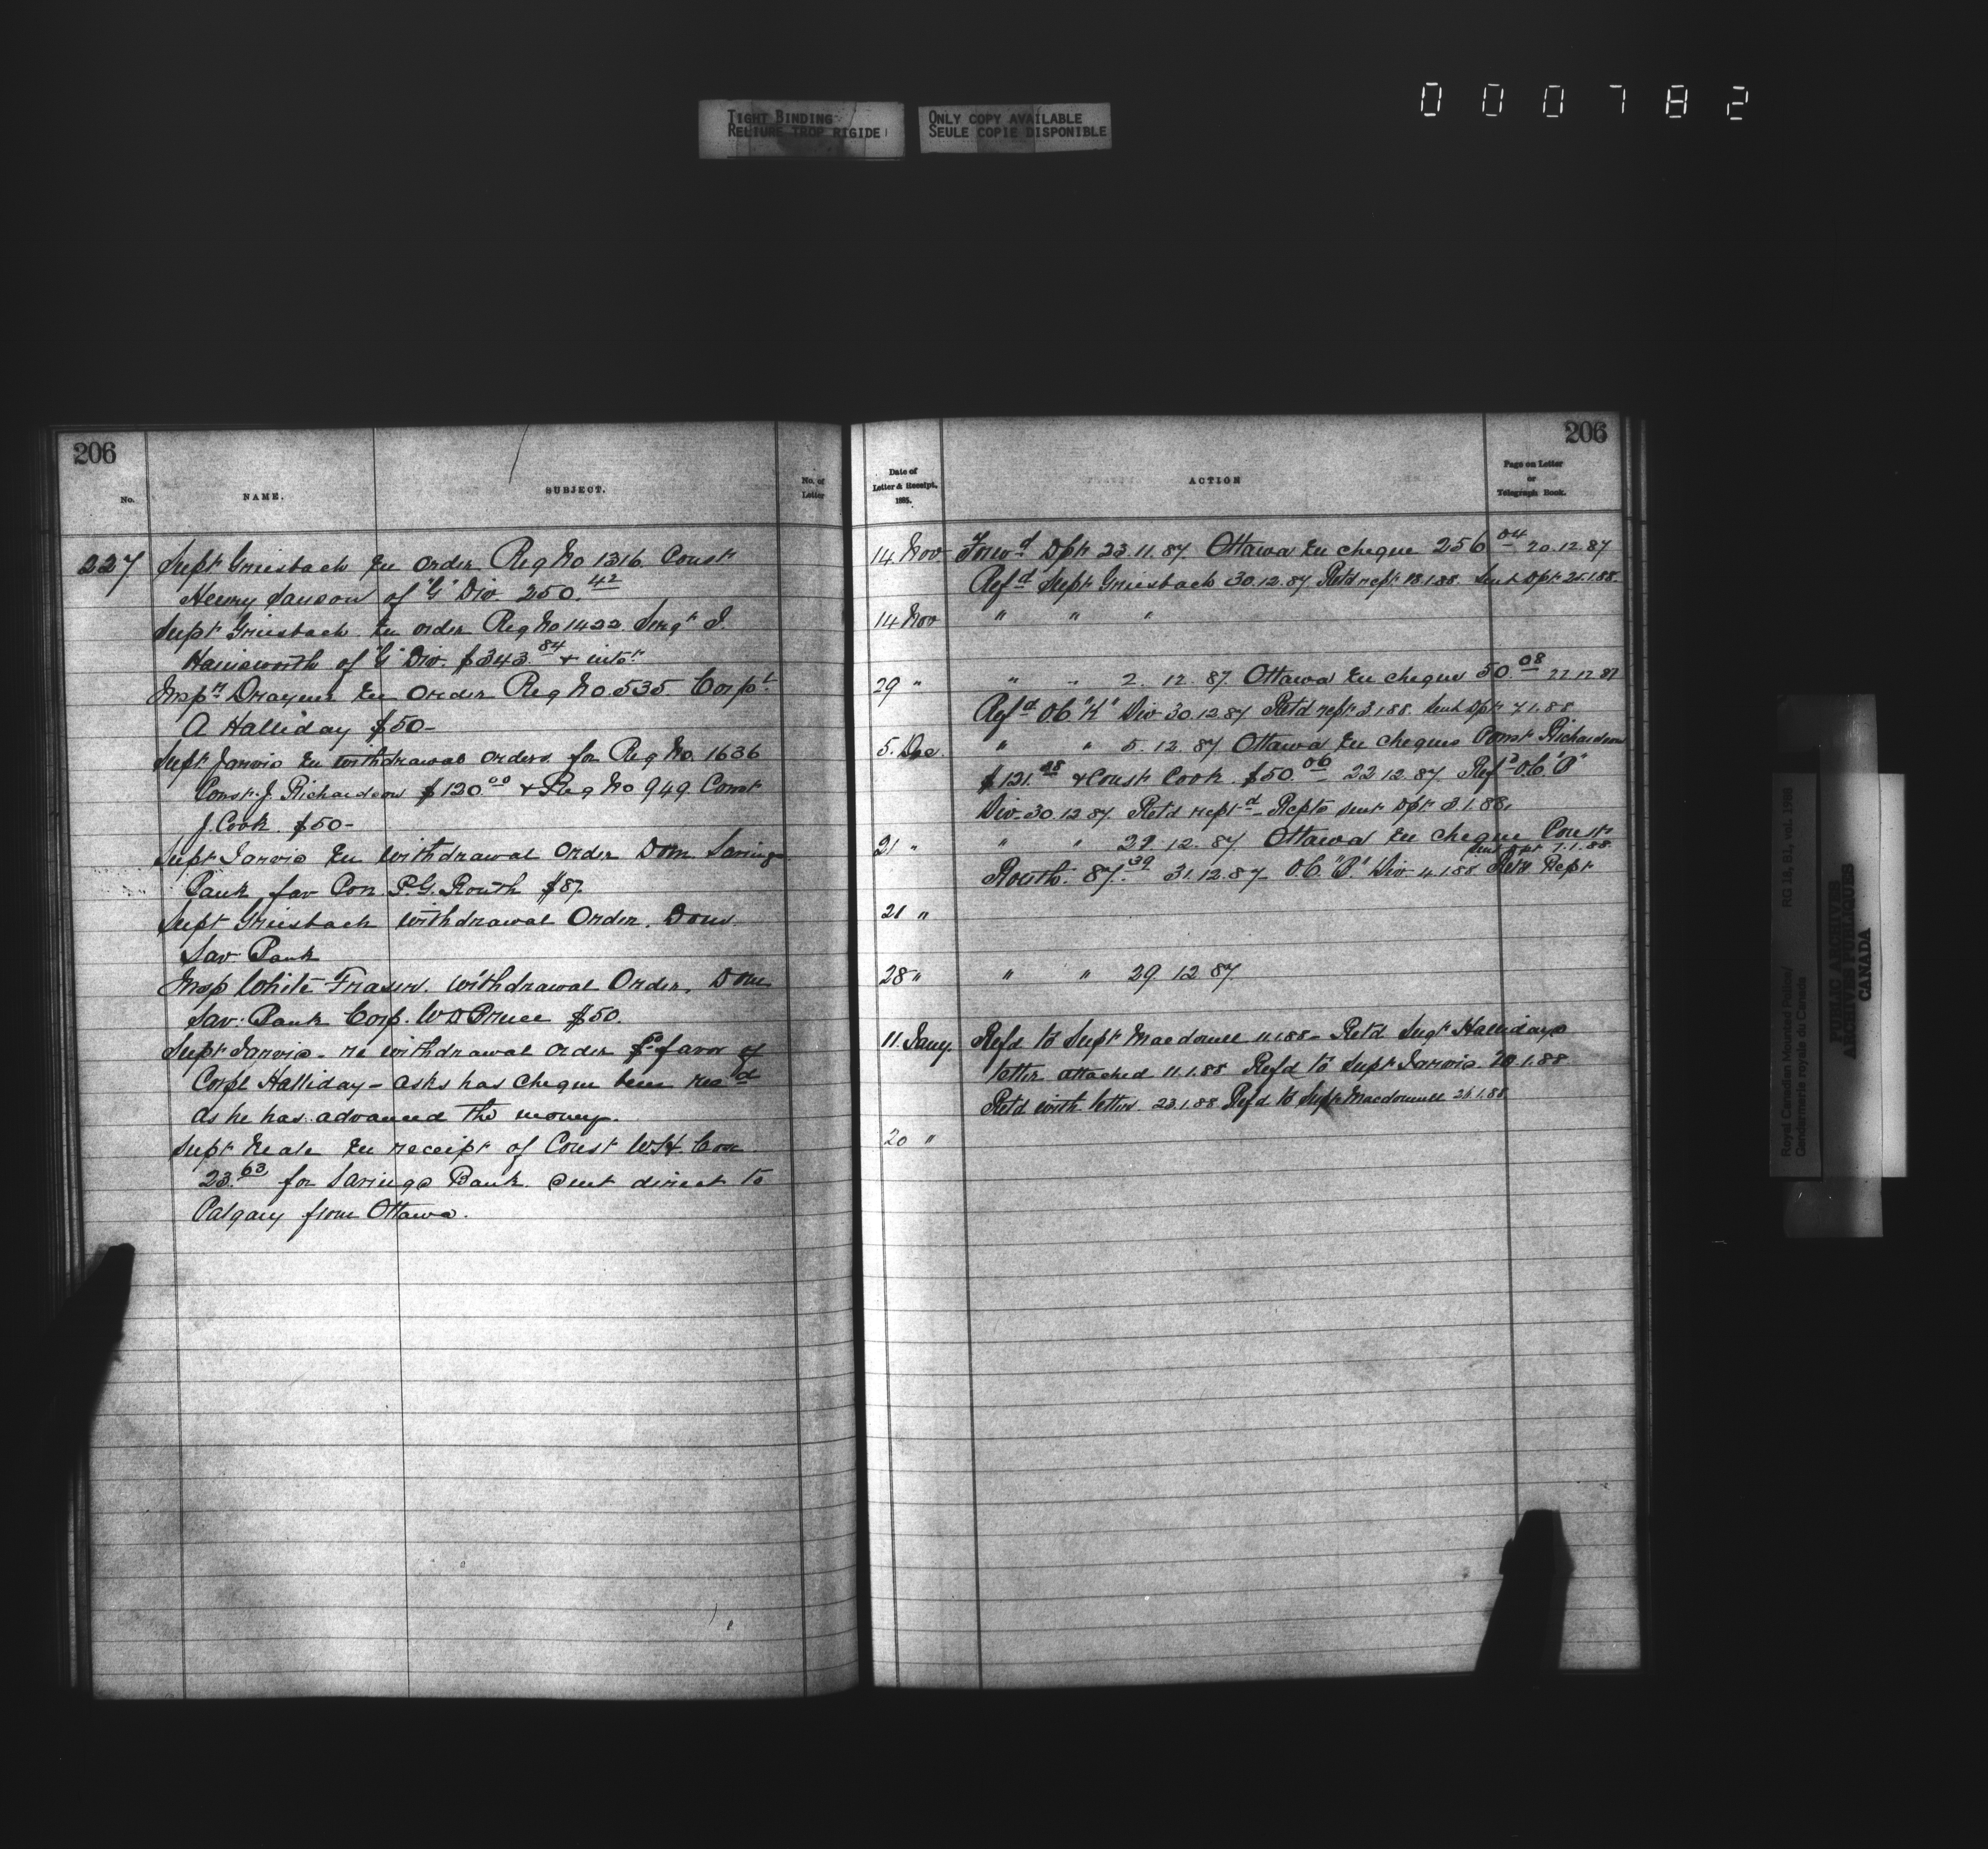 000782
TIGHT BINDING
RELIURE TROP RIGIDE
ONLY COPY AVAILABLE
SEULE COPIE DISPONIBLE
206
No.
NAME.
SUBJECT.
No. of
Letter
227 Supt Griesbach En order Reg No 1316. Const
Henry Sanson of "G" Div 250.42
Supt Griesbach En order Reg No 1422. Sergt J.
Hainsworth of "G" Div. $343.84 + intst
Inspr Drayner En Order Reg No 535 Corpl
A Halliday $50-
Supt Jarvis En withdrawal orders for Reg No. 1636
Const. J. Richardson $120.00 + Reg No 949. Const
J. Cook. $50-
Supt Jarvis En withdrawal Order Dom Savings
Bank fav Con. P.G. Routh $87.
Supt Griesbach withdrawal Order. Dom
Sav Bank
Insp White Fraser. withdrawal Order. Dom
Sav. Bank Corp. W D Bruce $50.
Supt Jarvis - re withdrawal order favor of
Corpl Halliday - asks has cheque been recd
as he has advanced the money.
Supt Neale En receipt of Const W.H. Cox
23.63 for Savings Bank. sent direct to
Calgary from Ottawa.
206
Date of
Letter & Receipt,
1885.
ACTION
Page on Letter
or
Telegraph Book.
14 Nov Forwd Dpt 23.11.87 Ottawa En cheque 256.04 20.12.87
Refd Supt Griesbach 30.12.87. Retd rept 18.1.88. Sent Dpt 21.1.88.
14 Nov " " "
29 " " " 2. 12. 87. Ottawa En cheque 50.08 22 12 87
Refd O.C. "K" Div 30.12.87 Retd rept 3.1.88. Sent Dpt 7.1.88.
5. Dec " " 5. 12. 87. Ottawa En cheques Const Richardson
$121. + Const Cook. $50.06 22 12.87. Refd O.C. Div. 30.12.87. Retd reptd - Repts sent Dpt 3.1.88.
21 " " " 22. 12. 87 Ottawa En cheque Const
sent Dpt 7.1.88.
Routh. 87.39 31.12.87. O.C. Div 4.1.88 Retd Rept
21 "
28 " " " 29 12 87.
11. Jany. Refd to Supt Macdonell 11.1.88 - Retd Sergt Hallidays
letter attached 11.1.88 Refd to Supt Jarvis. 20.1.88
Retd with letter. 23.1.88 Refd to Supt Macdonell 26.1.88.
20 "
Royal Canadian Mounted Police/
Gendarmerie royale du Canada
RG 18, B1, vol. 1985
PUBLIC ARCHIVES
ARCHIVES PUBLIQUES
CANADA